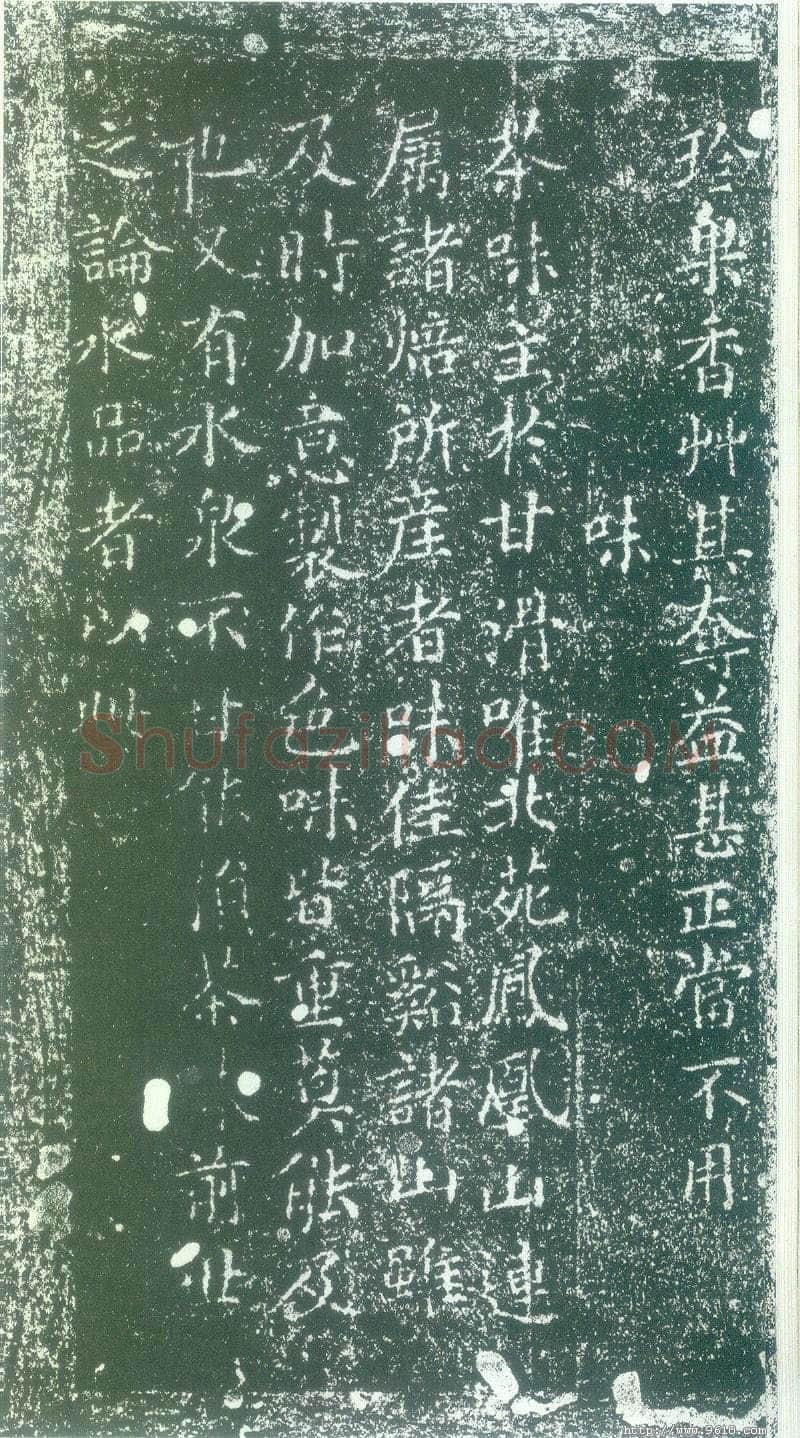 珍果香艸其奪益甚正當不用
味
茶味主於甘滑唯北苑鳳凰山連
屬諸焙所產者味佳隔谿諸山雖
及時加意製作色味皆重莫能及
也又有水泉不甘能損茶味前世
之論水品者以此
Shufaziliao.COM
http://www.9610.com